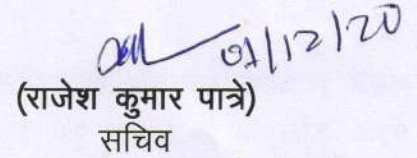 01/12/20
(राजेश कुमार पात्रे)
सचिव